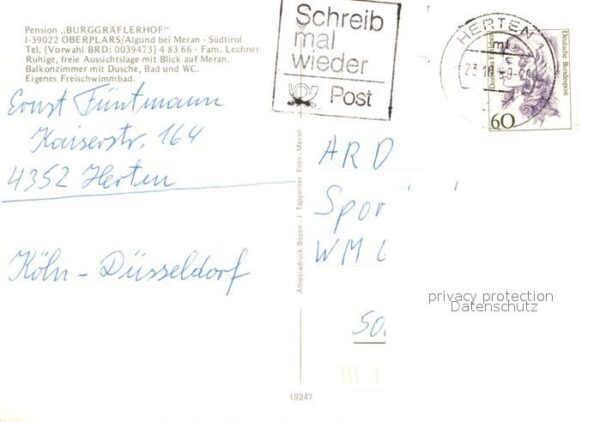 Pension „BURGGRÄFLERHOF"
I-39022 OBERPLARS/Algund bei Meran - Südtirol
Tel. (Vorwahl BRD: 0039473) 4 83 66 - Fam. Lechner
Ruhige, freie Aussichtslage mit Blick auf Meran.
Balkonzimmer mit Dusche, Bad und WC.
Eigenes Freischwimmbad.
Ernst Füntmann
Kaiserstr. 164
4352 Herten
Köln - Düsseldorf
Athesiadruck Bozen - J. Tappeiner Foto, Meran
Schreib
mal
wieder
Post
HERTEN
60
Deutsche Bundespost
ARD
Spor
WM
privacy protection
Datenschutz
19247